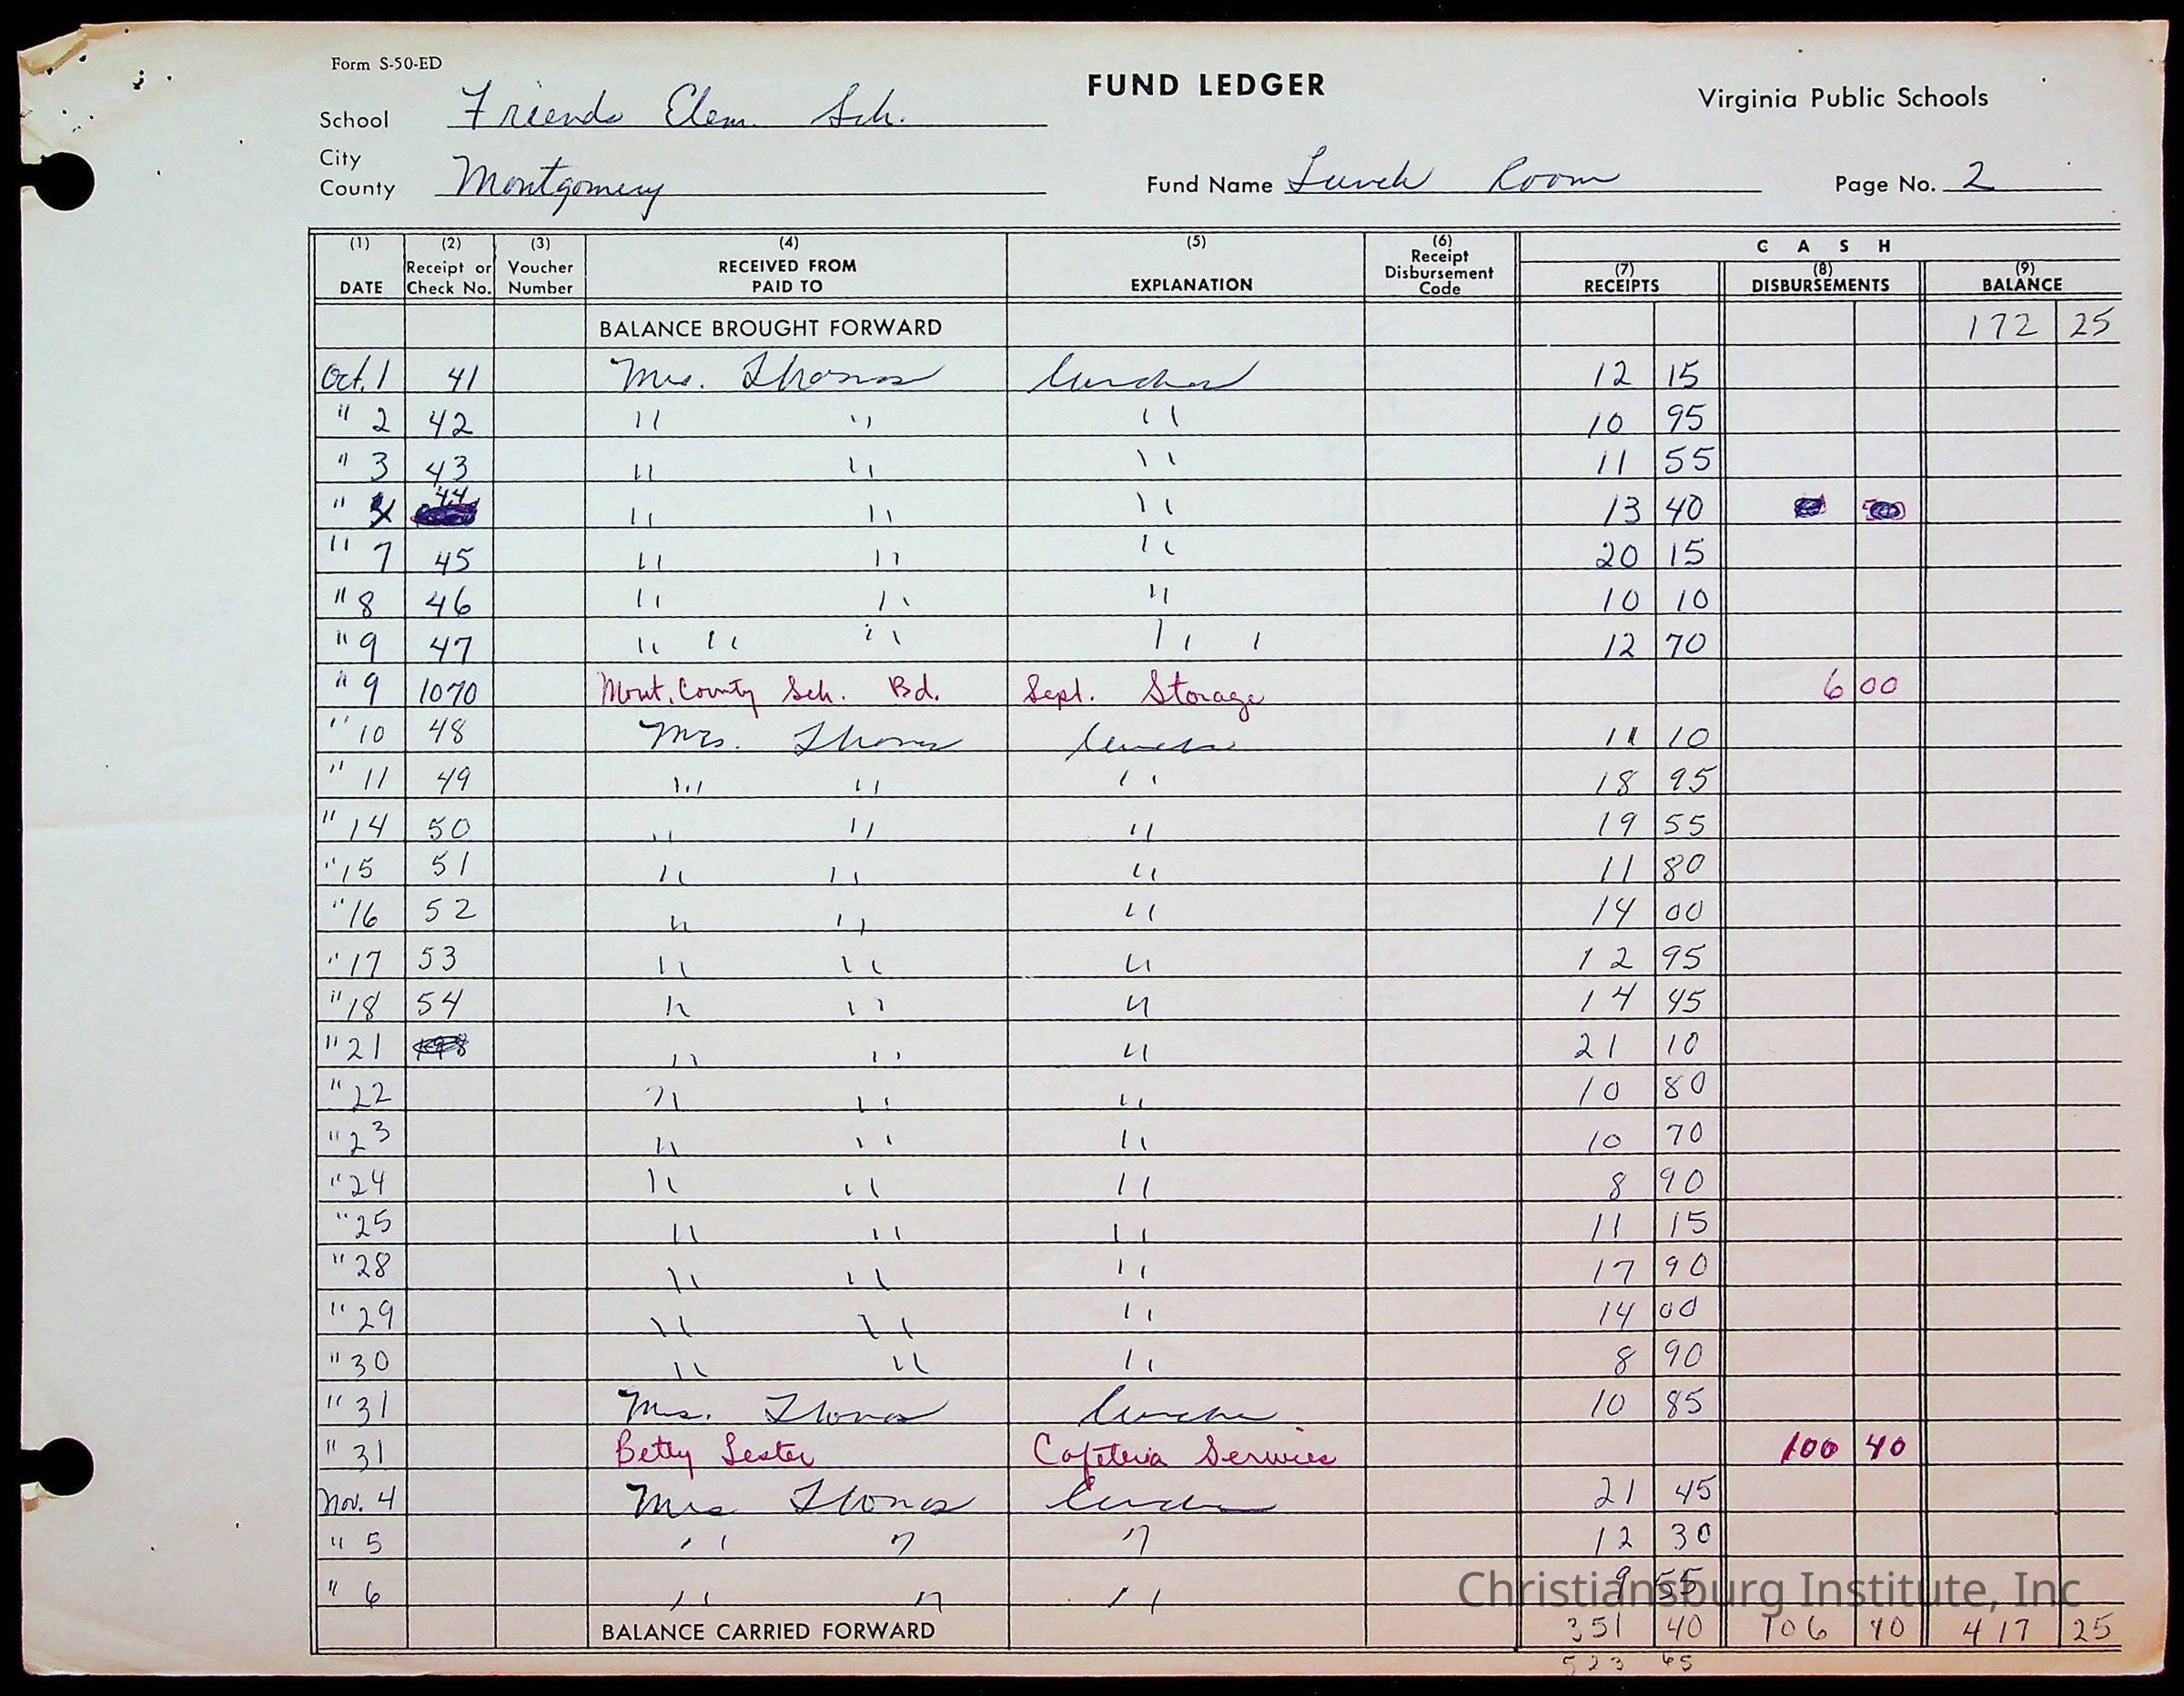 Form S-50-ED
FUND LEDGER
Virginia Public Schools
School Friends Elem. Sch.
City
County Montgomery Fund Name Lunch Room Page No. 2
(1) DATE (2) Receipt or Check No. (3) Voucher Number (4) RECEIVED FROM PAID TO (5) EXPLANATION (6) Receipt Disbursement Code CASH (7) RECEIPTS (8) DISBURSEMENTS (9) BALANCE
BALANCE BROUGHT FORWARD 172 25
Oct. 1 41 Mrs. Thomas lunches 12 15
" 2 42 " " " 10 95
" 3 43 " " " 11 55
" 44 " " " 13 40
" 7 45 " " " 20 15
" 8 46 " " " 10 10
" 9 47 " " " " " 12 70
" 9 1070 Mont. County Sch. Bd. Sept. Storage 6 00
" 10 48 Mrs. Thomas lunches 11 10
" 11 49 " " " 18 95
" 14 50 " " " 19 55
" 15 51 " " " 11 80
" 16 52 " " " 14 00
" 17 53 " " " 12 95
" 18 54 " " " 14 45
" 21 " " " 21 10
" 22 " " " 10 80
" 23 " " " 10 70
" 24 " " " 8 90
" 25 " " " 11 15
" 28 " " " 17 90
" 29 " " " 14 00
" 30 " " " 8 90
" 31 Mrs. Thomas lunches 10 85
" 31 Betty Lester Cafeteria Services 100 40
Nov. 4 Mrs Thomas lunches 21 45
" 5 " " " 12 30
" 6 " " " 9 55
Christiansburg Institute, Inc
BALANCE CARRIED FORWARD 351 40 106 40 417 25
523 65